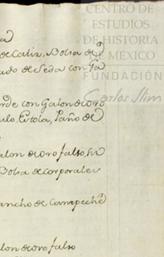 CENTRO DE
ESTUDIOS
DE HISTORIA
DE MÉXICO
FUNDACIÓN
Carlos Slim
de Caliz, Bolsa de
ado de Seda con Ga
rde con Galon de oro
ulo, Estola, Paño de
alon de oro falso, su
Bolsa de corporales
ancho de Campeche
alon de oro falso